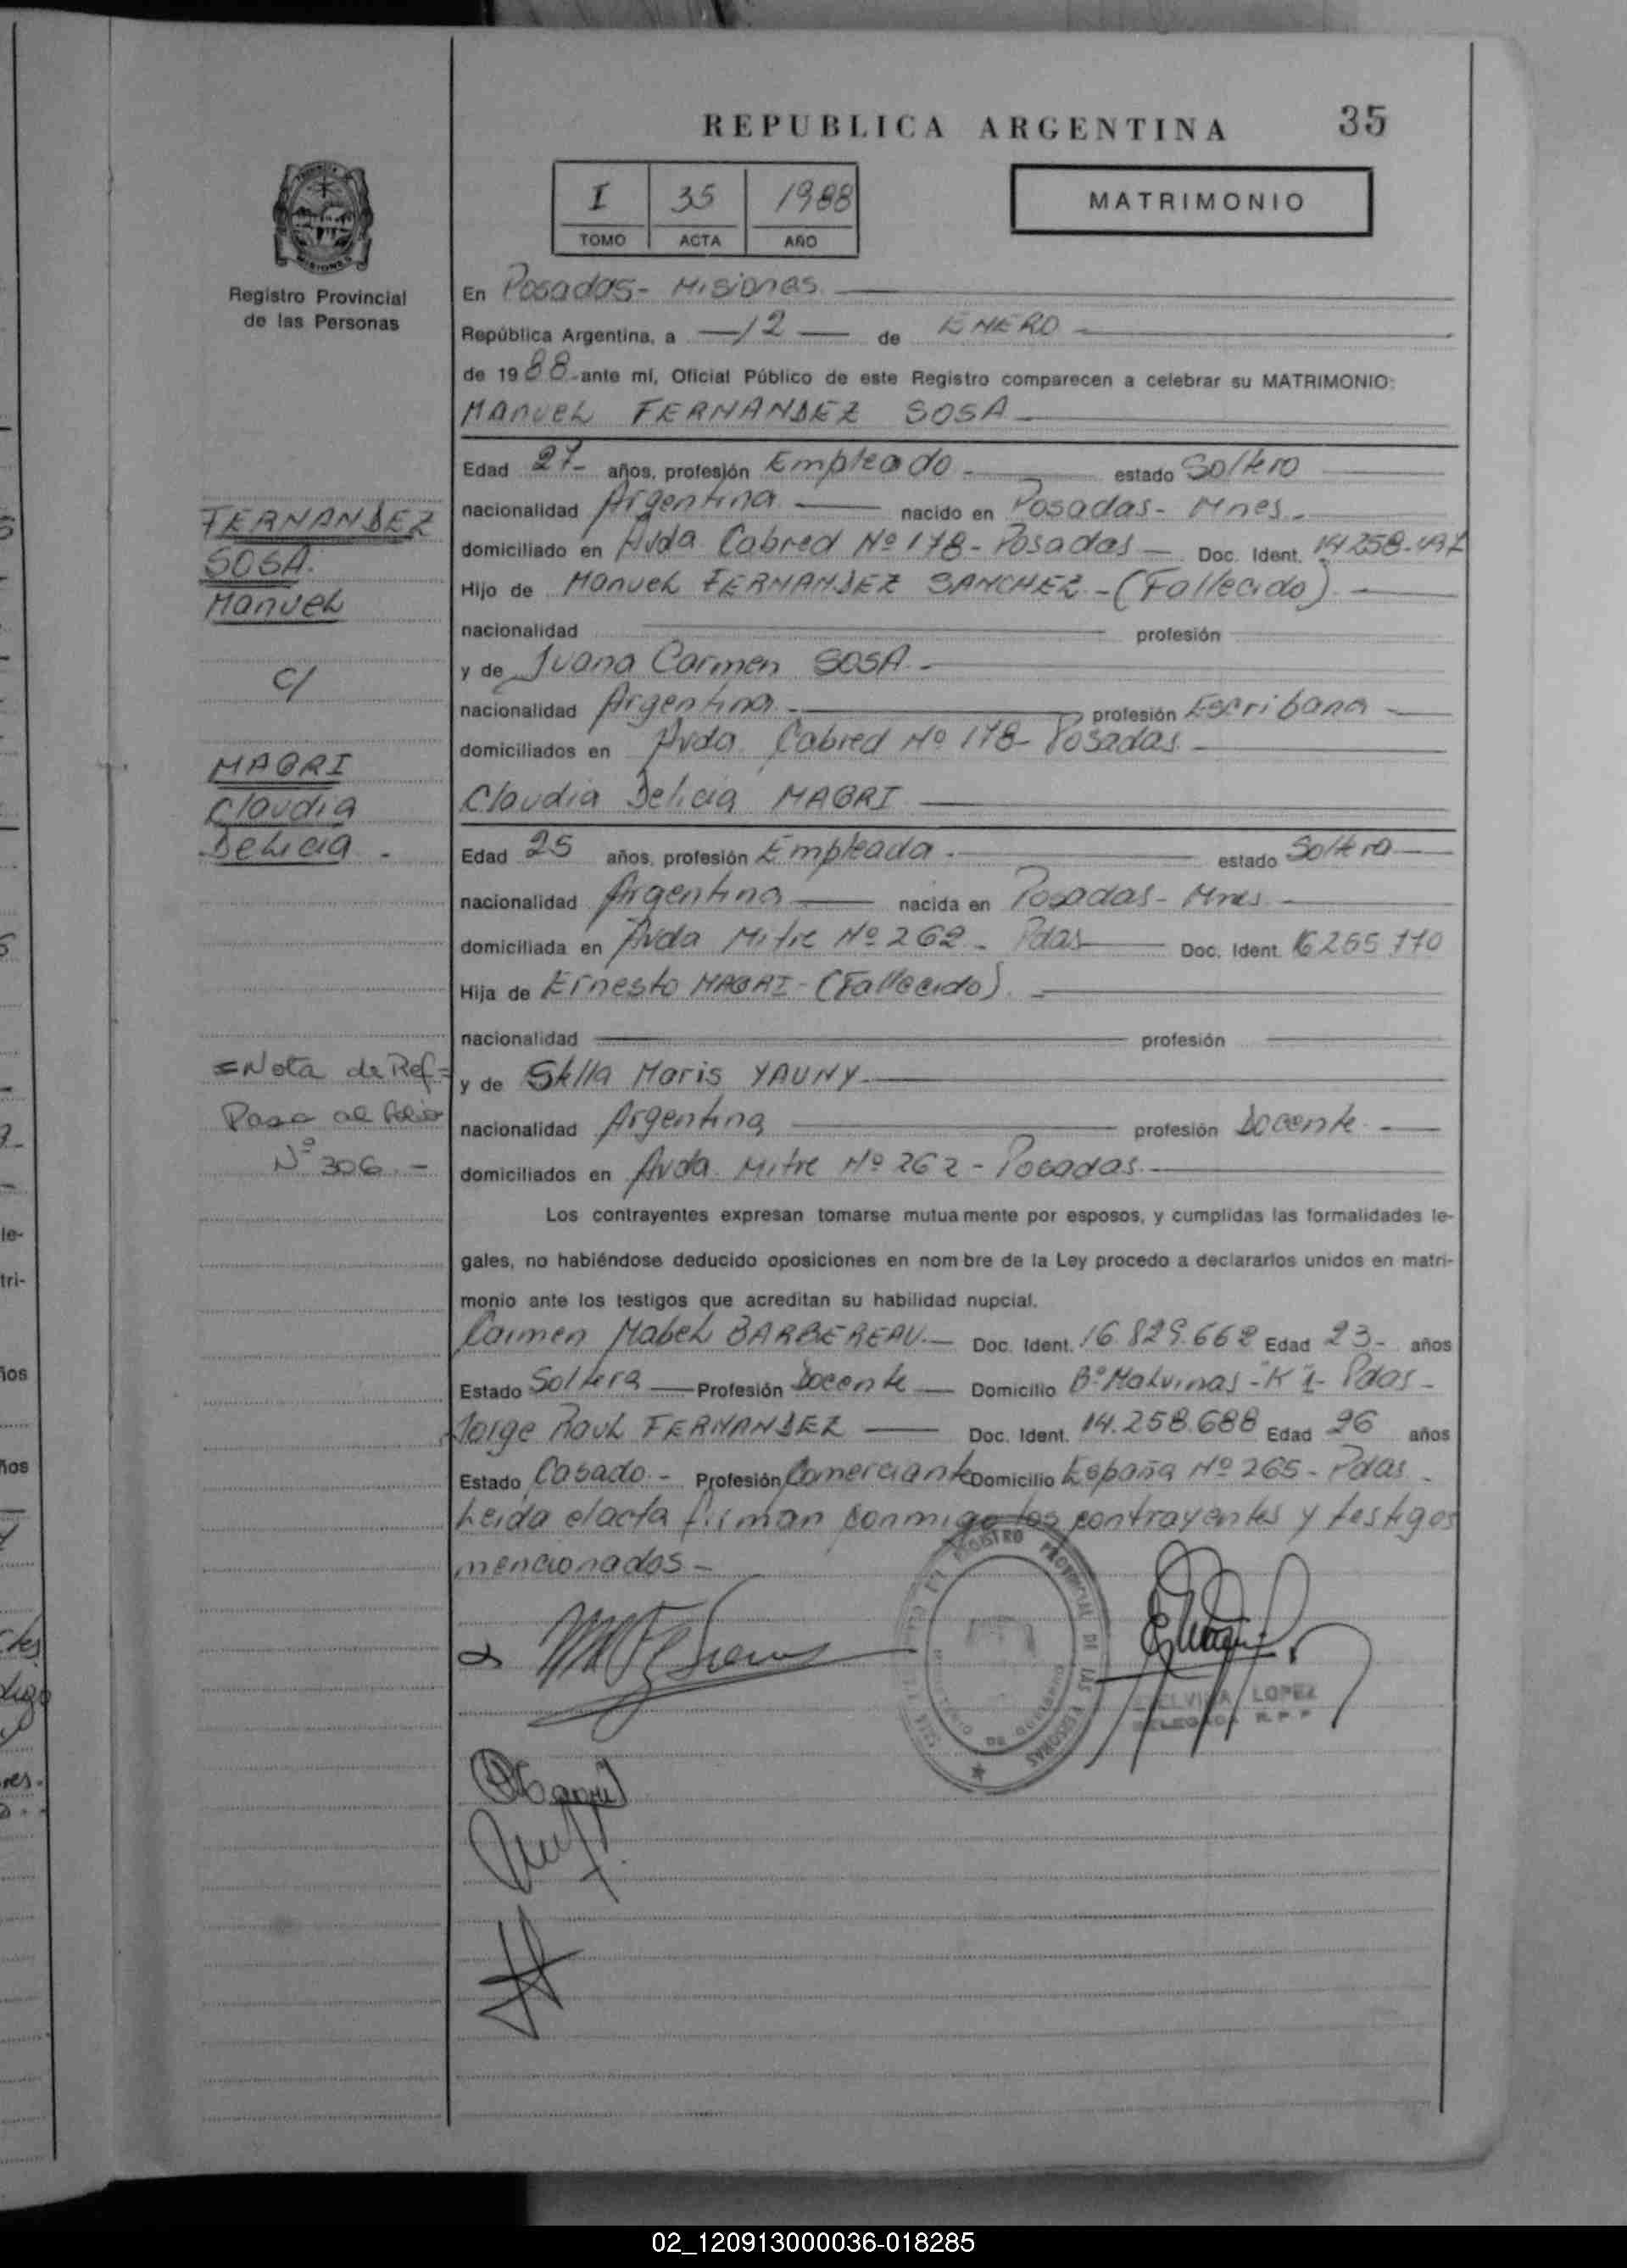 REPUBLICA ARGENTINA
35
I 35 1988
TOMO ACTA AÑO
MATRIMONIO
MISIONES
Registro Provincial
de las Personas
En Posadas - Misiones
República Argentina, a 12 de ENERO
de 1988 ante mí, Oficial Público de este Registro comparecen a celebrar su MATRIMONIO:
Manuel FERNANDEZ SOSA
Edad 27 años, profesión Empleado estado Soltero
nacionalidad Argentina nacido en Posadas - Mnes.
domiciliado en Avda Cabred Nº 178 - Posadas Doc. Ident. 14.258.497
Hijo de Manuel FERNANDEZ SANCHEZ - (Fallecido)
nacionalidad profesión
y de Juana Carmen SOSA
nacionalidad Argentina profesión Escribana
domiciliados en Avda. Cabred Nº 178 - Posadas
Claudia Delicia MAGRI
Edad 25 años, profesión Empleada estado Soltera
nacionalidad Argentina nacida en Posadas - Mnes.
domiciliada en Avda Mitre Nº 262 - Pdas Doc. Ident. 16.255.170
Hija de Ernesto MAGRI - (Fallecido)
nacionalidad profesión
y de Stella Maris YAUNY
nacionalidad Argentina profesión Docente
domiciliados en Avda. Mitre Nº 262 - Posadas
Los contrayentes expresan tomarse mutuamente por esposos, y cumplidas las formalidades le-
gales, no habiéndose deducido oposiciones en nombre de la Ley procedo a declararlos unidos en matri-
monio ante los testigos que acreditan su habilidad nupcial.
Carmen Mabel BARBEREAU Doc. Ident. 16.829.662 Edad 23 años
Estado Soltera Profesión Docente Domicilio Bº Malvinas - "K" 1 - Pdas -
Jorge Raul FERNANDEZ Doc. Ident. 14.258.688 Edad 26 años
Estado Casado - Profesión Comerciante Domicilio España Nº 265 - Pdas
Leida el acta firman conmigo los contrayentes y testigos
mencionados -
REGISTRO PROVINCIAL DE LAS PERSONAS
LOPEZ
DELEGADA R.P.P
FERNANDEZ
SOSA.
Manuel
c/
MAGRI
Claudia
Delicia -
=Nota de Ref=
Pasa al folio
Nº 306. -
02_120913000036-018285